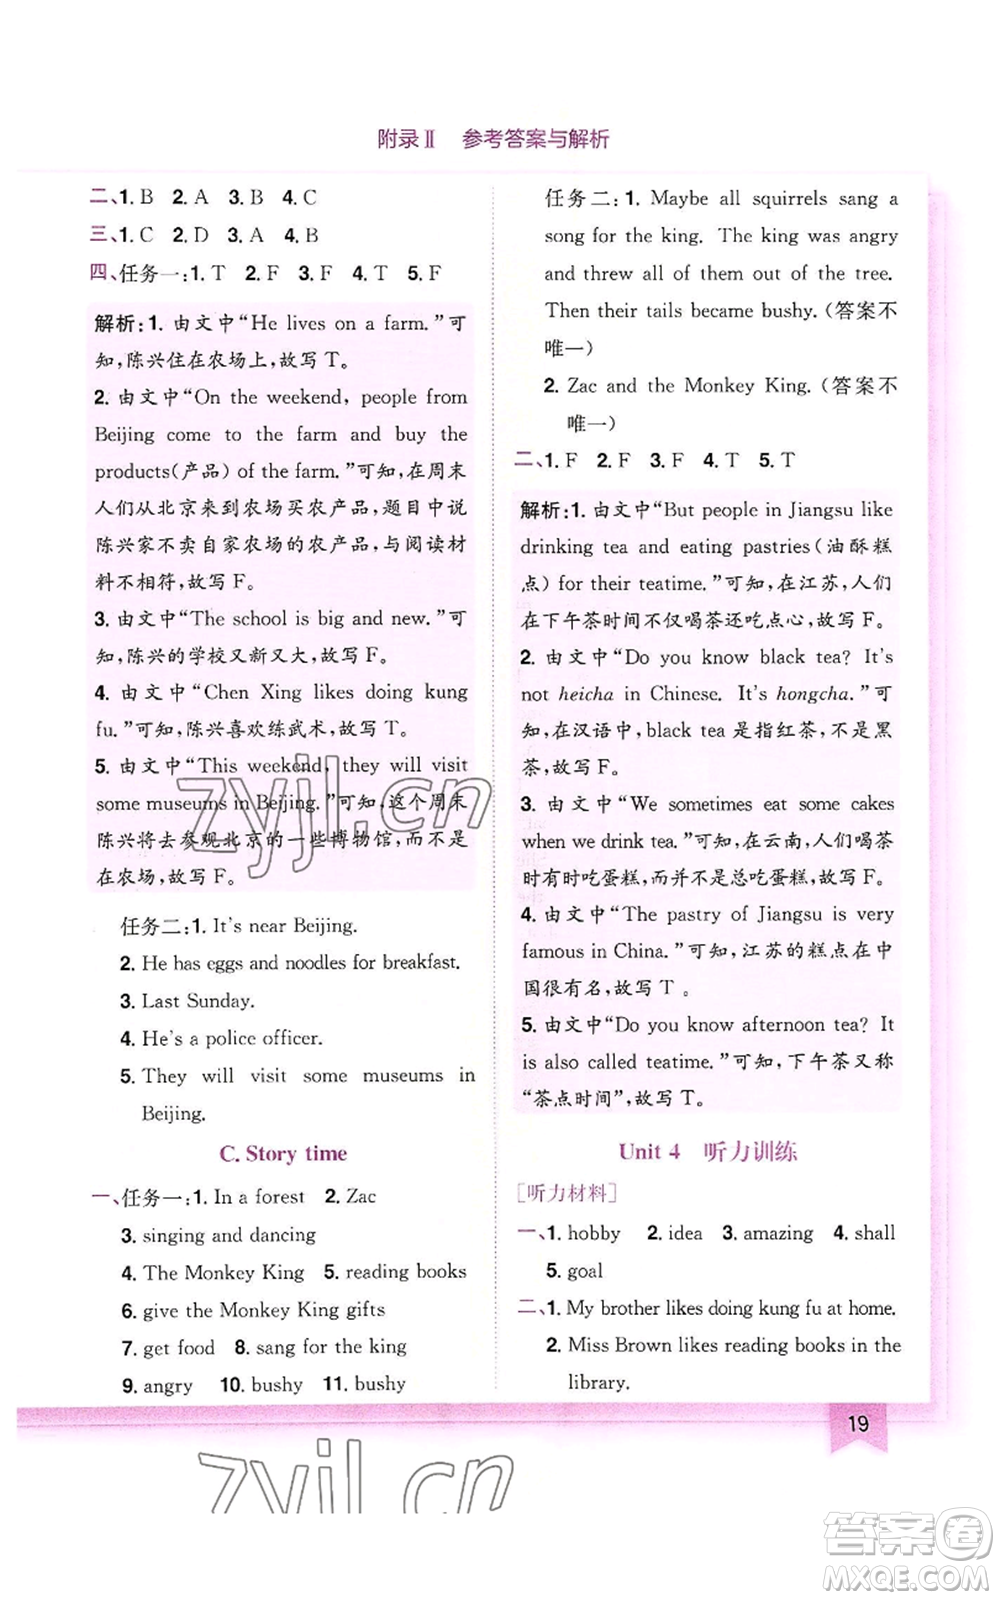 附录Ⅱ 参考答案与解析
二、1. B 2. A 3. B 4. C
三、1. C 2. D 3. A 4. B
四、任务一:1. T 2. F 3. F 4. T 5. F
解析:1. 由文中“He lives on a farm.”可
知,陈兴住在农场上,故写 T。
2. 由文中“On the weekend, people from
Beijing come to the farm and buy the
products(产品) of the farm.”可知,在周末
人们从北京来到农场买农产品,题目中说
陈兴家不卖自家农场的农产品,与阅读材
料不相符,故写 F。
3. 由文中“The school is big and new.”可
知,陈兴的学校又新又大,故写 F。
4. 由文中“Chen Xing likes doing kung
fu.”可知,陈兴喜欢练武术,故写 T。
5. 由文中“This weekend, they will visit
some museums in Beijing.”可知,这个周末
陈兴将去参观北京的一些博物馆,而不是
在农场,故写 F。
任务二:1. It's near Beijing.
2. He has eggs and noodles for breakfast.
3. Last Sunday.
4. He's a police officer.
5. They will visit some museums in
Beijing.
C. Story time
一、任务一:1. In a forest 2. Zac
3. singing and dancing
4. The Monkey King 5. reading books
6. give the Monkey King gifts
7. get food 8. sang for the king
9. angry 10. bushy 11. bushy
任务二:1. Maybe all squirrels sang a
song for the king. The king was angry
and threw all of them out of the tree.
Then their tails became bushy. (答案不
唯一)
2. Zac and the Monkey King. (答案不
唯一)
二、1. F 2. F 3. F 4. T 5. T
解析:1. 由文中“But people in Jiangsu like
drinking tea and eating pastries(油酥糕
点) for their teatime.”可知,在江苏,人们
在下午茶时间不仅喝茶还吃点心,故写 F。
2. 由文中“Do you know black tea? It's
not heicha in Chinese. It's hongcha.”可
知,在汉语中,black tea 是指红茶,不是黑
茶,故写 F。
3. 由文中“We sometimes eat some cakes
when we drink tea.”可知,在云南,人们喝茶
时有时吃蛋糕,而并不是总吃蛋糕,故写 F。
4. 由文中“The pastry of Jiangsu is very
famous in China.”可知,江苏的糕点在中
国很有名,故写 T 。
5. 由文中“Do you know afternoon tea? It
is also called teatime.”可知,下午茶又称
“茶点时间”,故写 T。
Unit 4 听力训练
[听力材料]
一、1. hobby 2. idea 3. amazing 4. shall
5. goal
二、1. My brother likes doing kung fu at home.
2. Miss Brown likes reading books in the
library.
19
zyjl.cn
zyjl.cn
答案卷
MXQE.COM